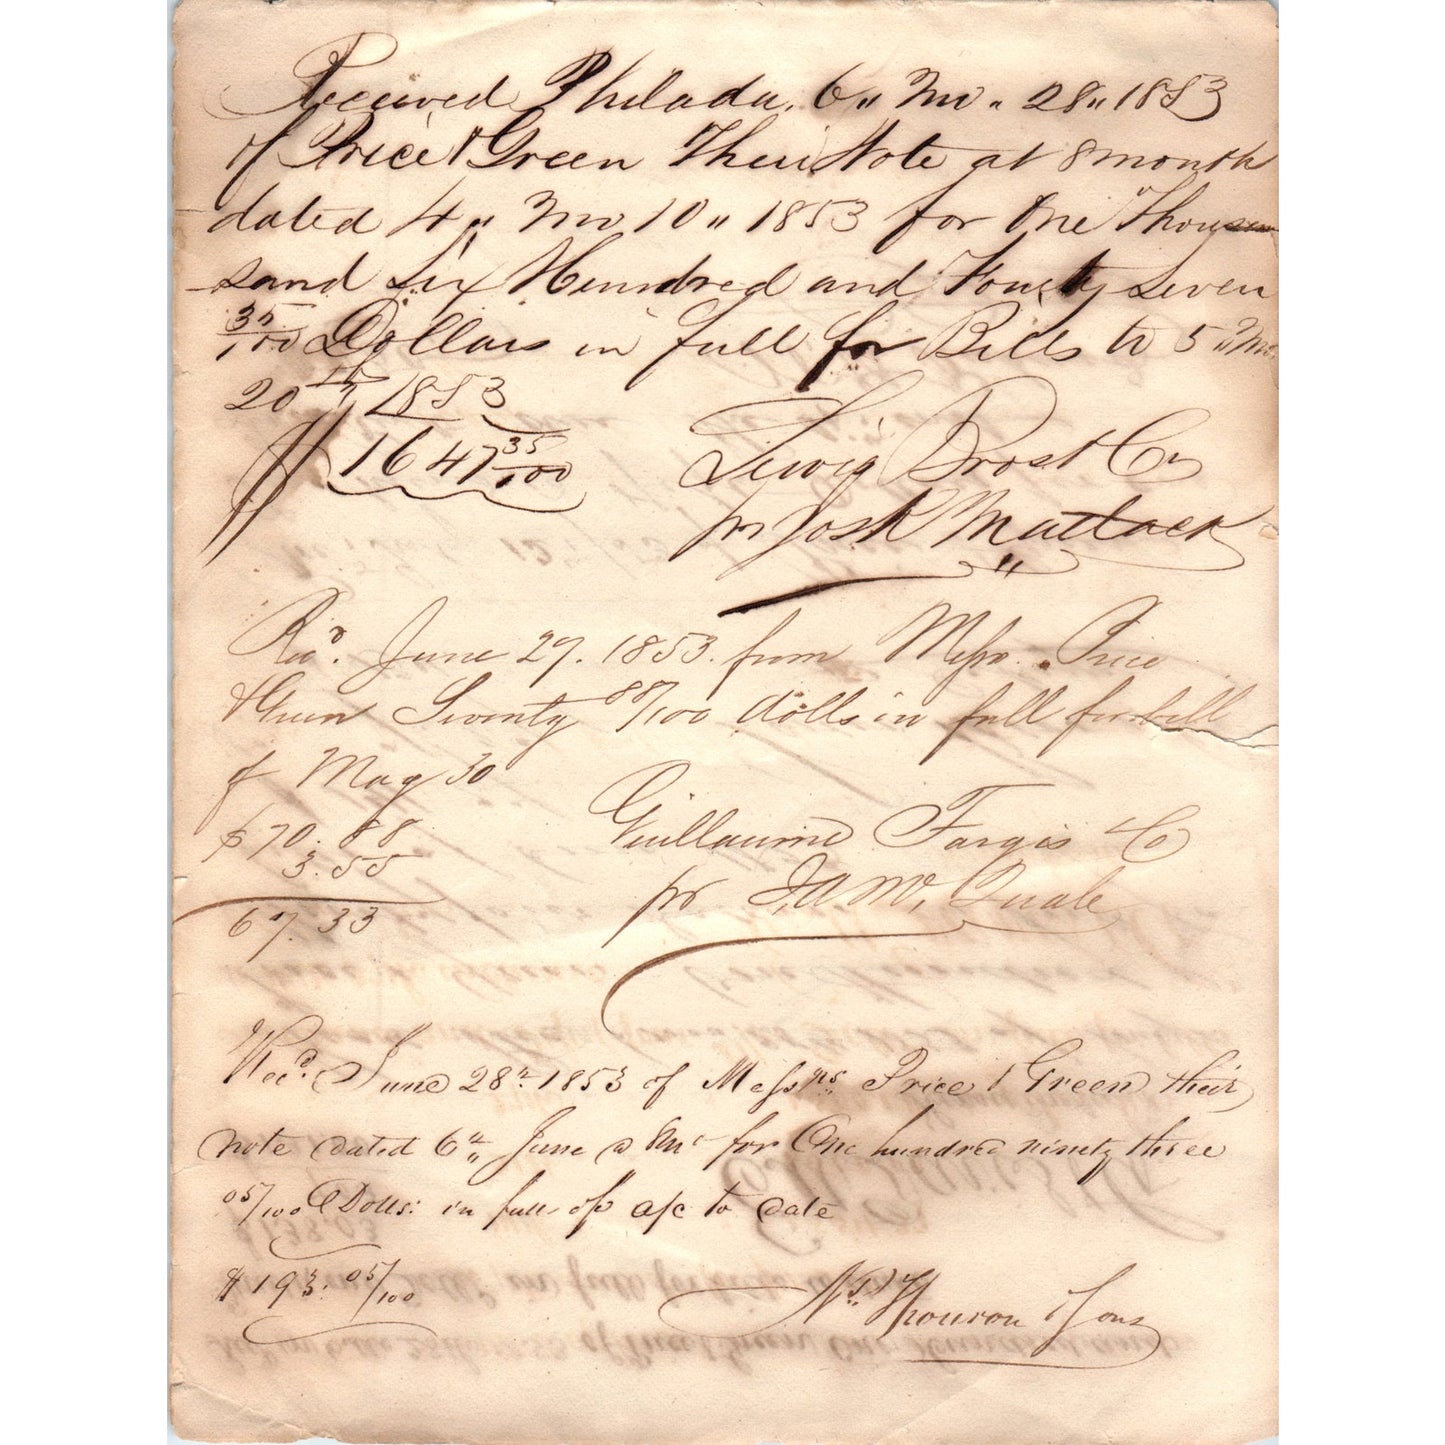 Received Philada. 6 " Mo " 28 " 1853
of Price & Green Their Note at 8 month
dated 4 " Mo 10 " 1853 for One Thou
sand Six Hundred and Fourty Seven
35/100 Dollars in full for Bills to 5 " Mo
20th 1853
$1647 35/100
Lewis Brost & Co
pr Josh Matlack
Recd. June 29. 1853. from Messrs. Price
& Green Seventy 88/100 dolls in full for bill
of May 30
$70.88
3.55
67.33
Guillaume Fargis & Co
pr Quale
Recd. June 28th 1853 of Messrs Price & Green their
note dated 6th June @ 8 Mo for One hundred ninety three
05/100 Dolls: in full of a/c to date
$193. 05/100
& Sons